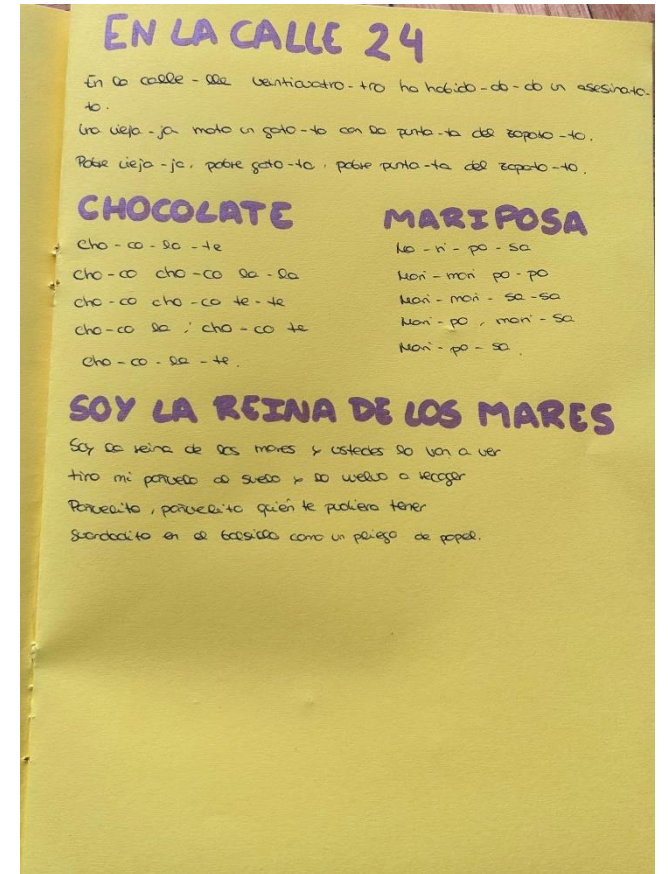 EN LA CALLE 24
En la calle - lle ventiuatro - tro ha habido - do - do un asesinato -
to.
Una vieja - ja mato un gato - to con la punta - ta del zapato - to.
Pobre vieja - ja, pobre gato - to, pobre punta - ta del zapato - to.
CHOCOLATE
Cho - co - la - te
Cho - co cho - co la - la
cho - co cho - co te - te
cho - co la , cho - co te
Cho - co - la - te.
MARIPOSA
Ma - ri - po - sa
Mari - mari po - po
Mari - mari - sa - sa
Mari - po , mari - sa
Mari - po - sa.
SOY LA REINA DE LOS MARES
Soy la reina de los mares y ustedes lo van a ver
tiro mi pañuelo al suelo y lo vuelvo a recoger
Pañuelito, pañuelito quién te pudiera tener
Guardadito en el bolsillo como un pliego de papel.